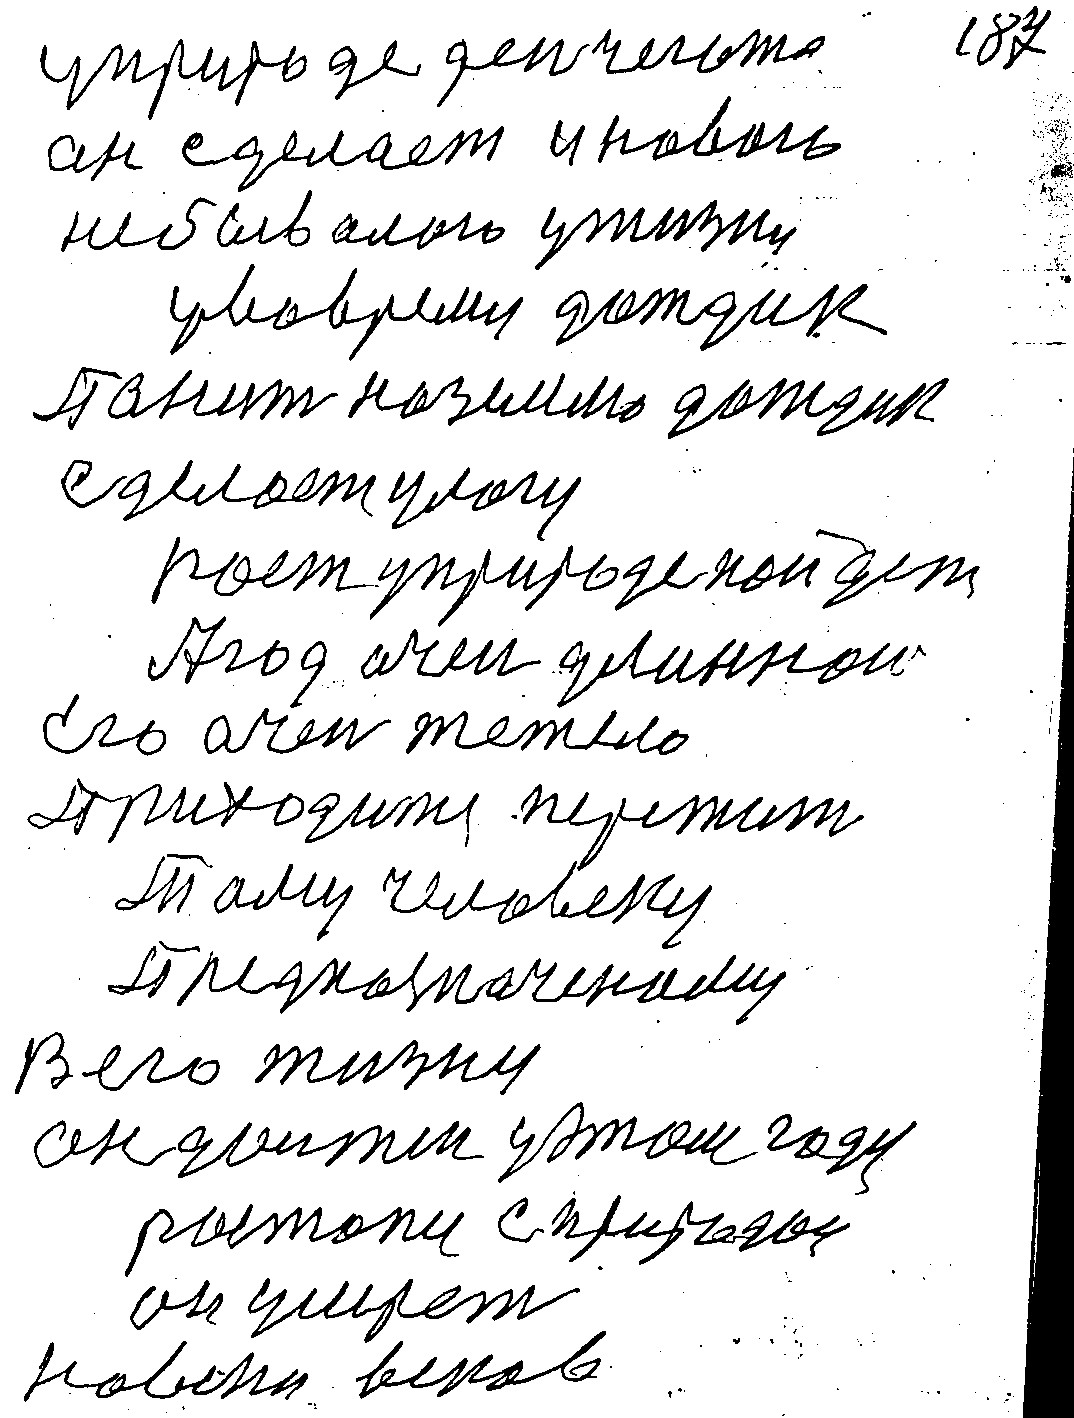 187
уприродe ден чегото
он сделает и нового
небывалого ужизни
увовремя дождик
Панит на землю дождик
сделает улогу
рост уприроде пойдет
А год очен длинной
Его очен тежело
Приходитц пережит
Таму человеку
Предназначеному
В его жизни
он должен уэтом году
ростопц с природой
он умирет
на веки веков